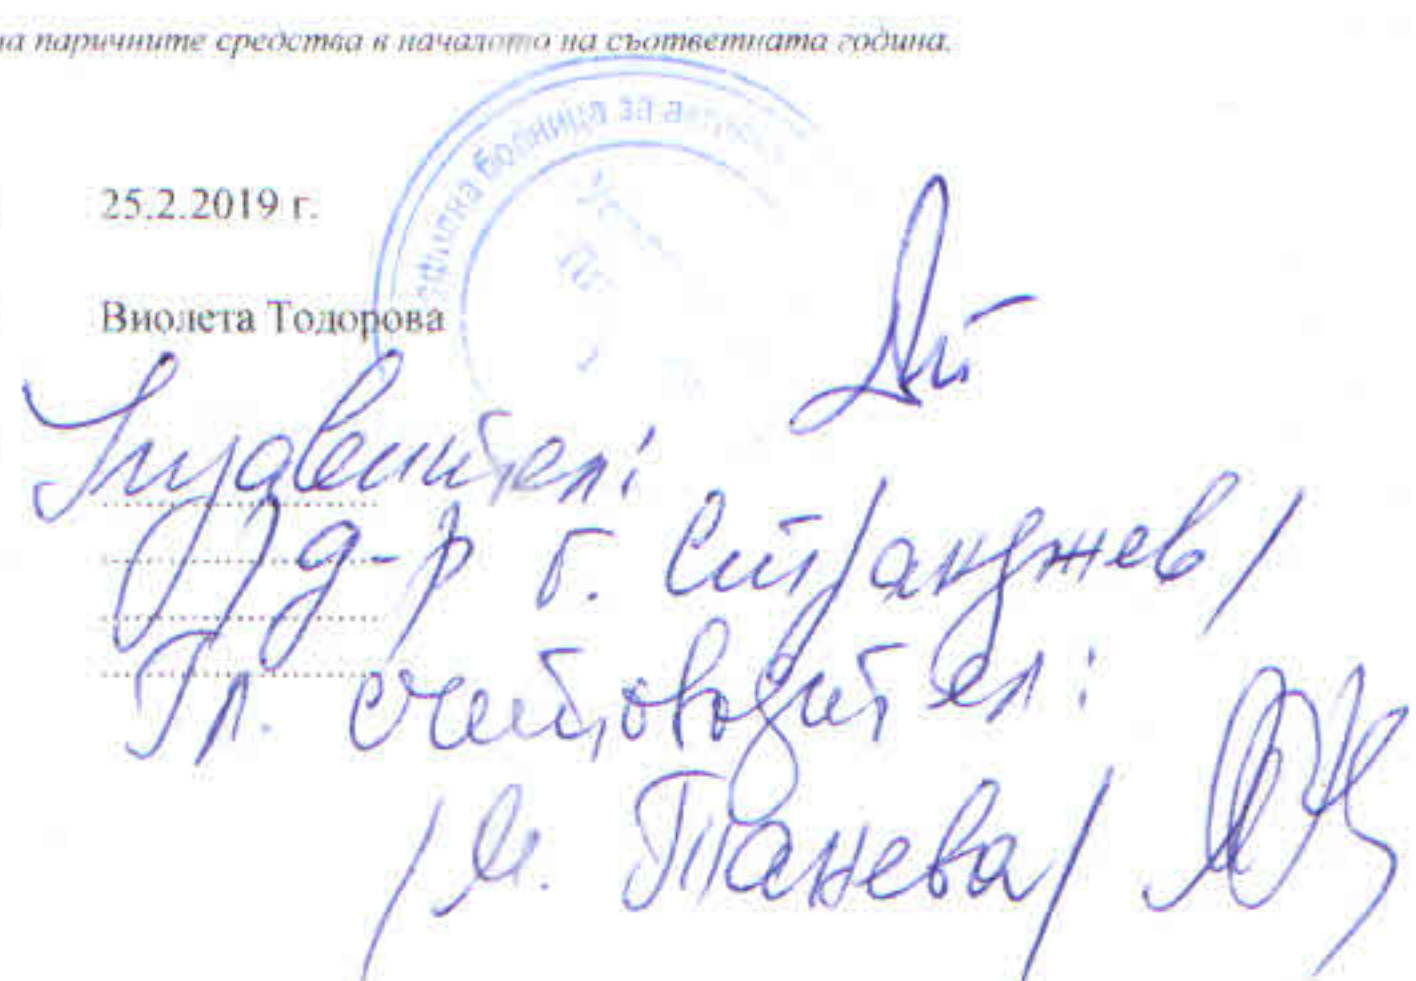 на паричните средства в началото на съответната година.
болница за а
25.2.2019 г.
Виолета Тодорова
/д-р Г. Странджев/
Гл. счетоводител:
/М. Танева/